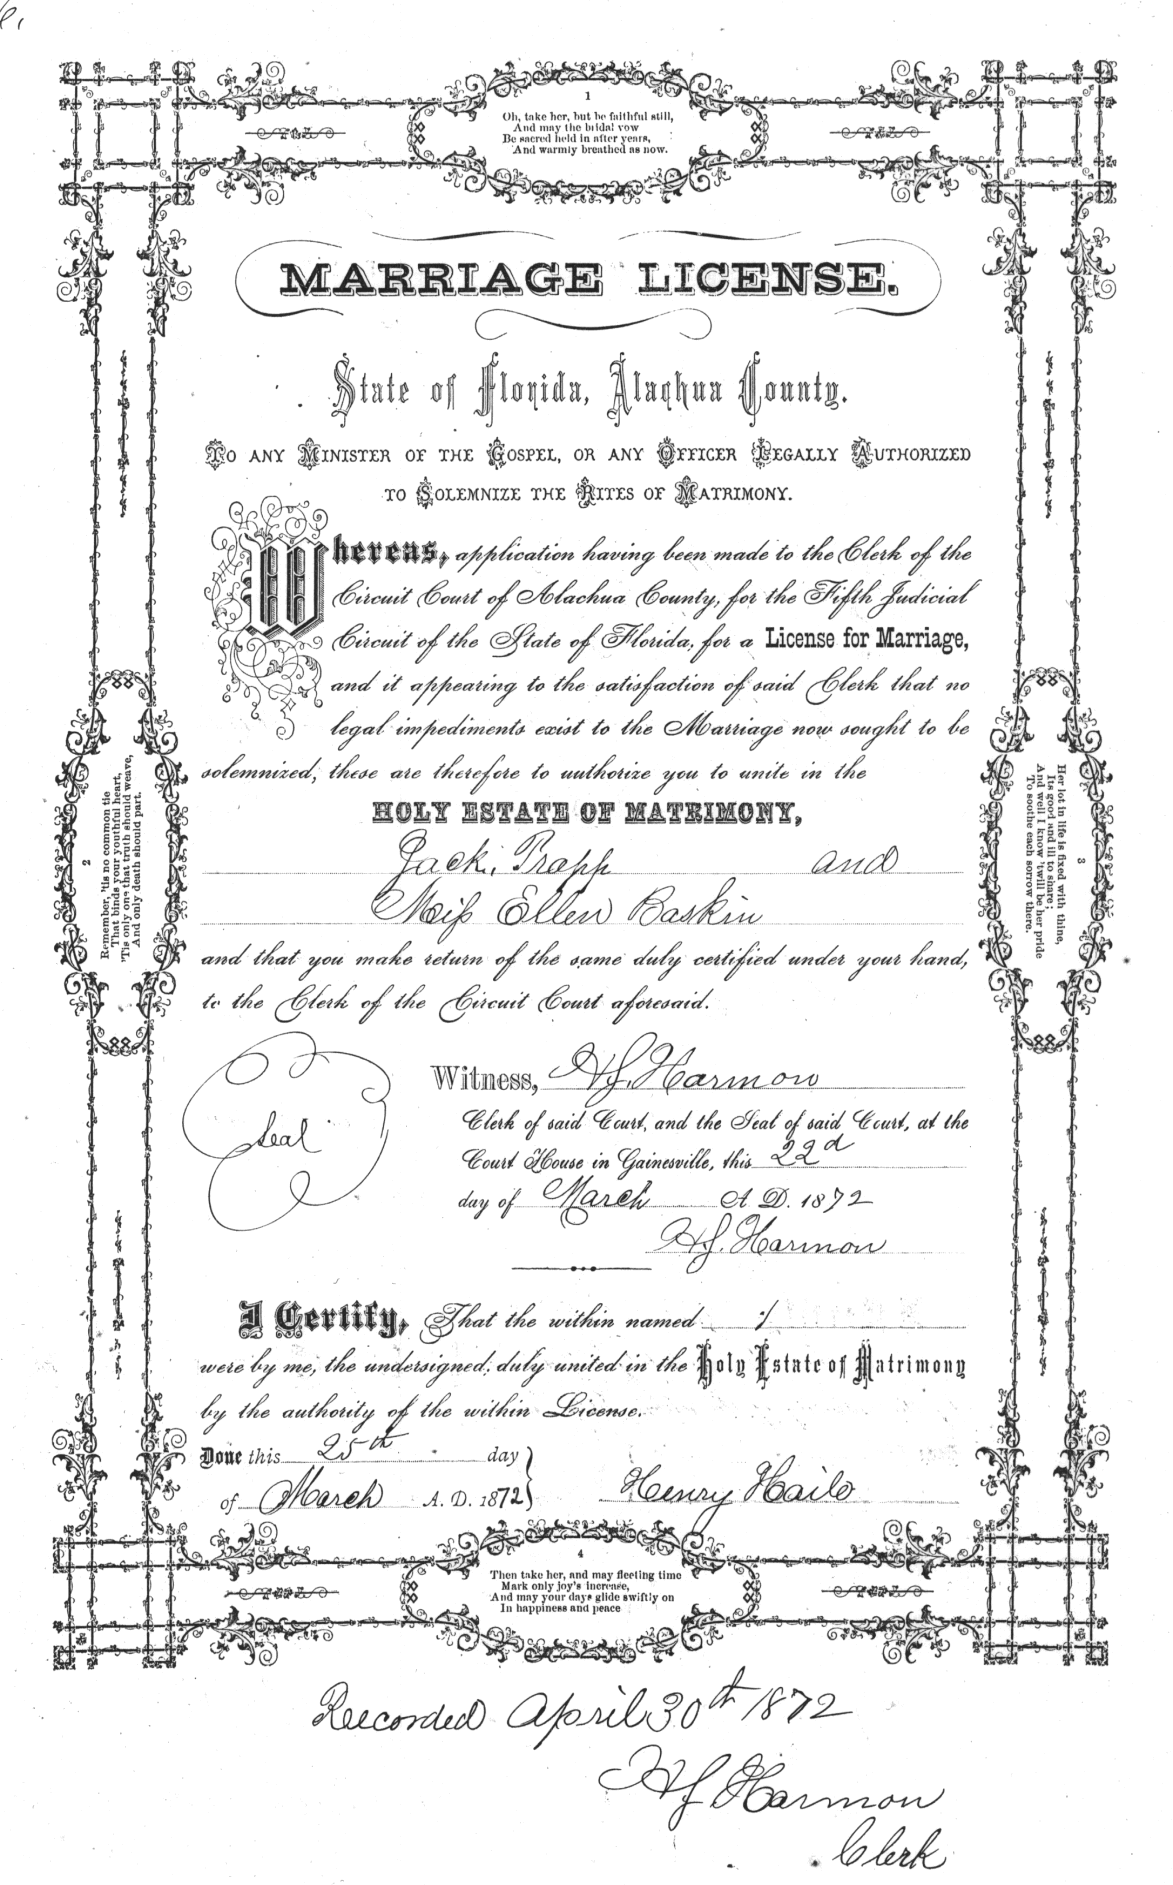 1
Oh, take her, but be faithful still,
And may the bridal vow
Be sacred held in after years,
And warmly breathed as now.
MARRIAGE LICENSE.
State of Florida, Alachua County.
TO ANY MINISTER OF THE GOSPEL, OR ANY OFFICER LEGALLY AUTHORIZED
TO SOLEMNIZE THE RITES OF MATRIMONY.
Whereas, application having been made to the Clerk of the
Circuit Court of Alachua County, for the Fifth Judicial
Circuit of the State of Florida, for a License for Marriage,
and it appearing to the satisfaction of said Clerk that no
legal impediments exist to the Marriage now sought to be
solemnized; these are therefore to authorize you to unite in the
HOLY ESTATE OF MATRIMONY,
Jack. Trapp and
Miss Ellen Baskin
and that you make return of the same duly certified under your hand,
to the Clerk of the Circuit Court aforesaid.
2
Remember, 'tis no common tie
That binds your youthful heart,
'Tis only one that truth should weave,
And only death should part.
3
Her lot in life is fixed with thine,
Its good and ill to share;
And well I know 'twill be her pride
To soothe each sorrow there.
Seal
Witness, H.J. Harmon
Clerk of said Court, and the Seal of said Court, at the
Court House in Gainesville, this 22d
day of March A. D. 1872
H.J. Harmon
I Certify, That the within named
were by me, the undersigned, duly united in the Holy Estate of Matrimony
by the authority of the within License.
Done this 25th day
of March A. D. 1872
Henry Haile
4
Then take her, and may fleeting time
Mark only joy's increase,
And may your days glide swiftly on
In happiness and peace
Recorded April 30th 1872
HJ Harmon
Clerk